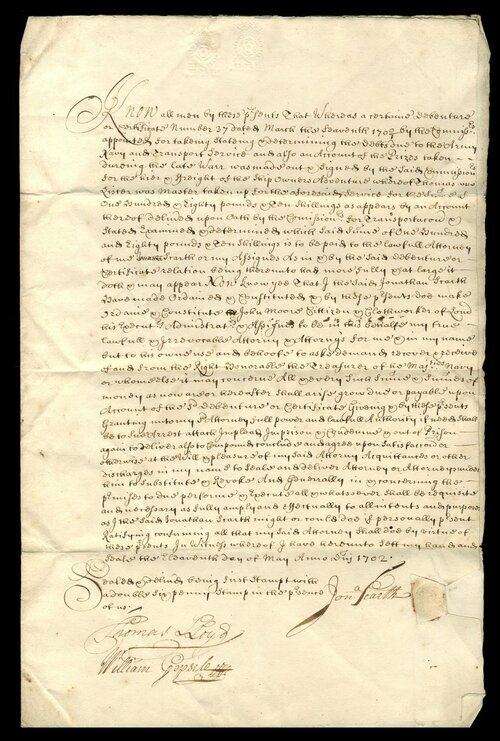 Know all men by these p:sents That Whereas a certaine debenture
or certificate Number 37 dated March the Seventh 1702 by the Commiss:rs
appointed for taking Stateing & determining the debts due to the Army
Navy and Transport Service and also an Account of the Prizes taken
dureing the late Warr was made out & Signed by the Said Commission:rs
for the hire & freight of the Ship Owners Adventure whereof Thomas
Lister was Master taken up for the aforesaid Service for the Sume of
One Hundred & Eighty pounds & Ten Shillings as appears by an Account
thereof delivered upon Oath by the Comission:rs for Transportacon &
Stated Examined & determined which Said Sume of One Hundred
and Eighty pounds & Ten Shillings is to be paid to the lawfull Attorney
of me Jonathan Scarth or my Assignes As in & by the Said debenture or
Certificate relation being thereunto had more fully & at large it
doth & may appear Now know yee That I the Said Jonathan Scarth
Have made Ordained & Constituted & by these p:sents doe make
Ordaine & Constitute John Moore Cittizen & Clothworker of Lond:
his Execut:rs Administrat:rs & Assignes to be in this behalfe my true
lawfull & Irrevocable Attorny & Attornys for me & in my name
but to his owne use and behoofe to aske demand recover & receive
of and from the Right Honorable the Treasurer of the Maj:ties Navy
or whome else it may concerne All & every Such Sume & Sumes of
money as now are or hereafter Shall arise grow due or payable upon
Account of the S:d debenture or Certificate Giveing & by these p:sents
Granting unto my S:d Attorney full power and lawfull Authority if need Shall
be to Sue Arrest attach Implead Imprison & Condemne & out of Prison
again to deliver also to Compound conclude and agree upon Satisfaccon or
otherwise at the Will & pleasure of my Said Attorny Acquittances or other
discharges in my name to Seale and deliver Attorney or Attorneys under
him to Substitute & Revoke And Generally in & concerning the
premises to doe performe & Execute all & whatsoever Shall be requisite
and necessary as fully amply and effectually to all intents and purposes
as I the Said Jonathan Scarth might or could doe if personally p:sent
Ratifying confirming all that my Said Attorny Shall doe by virtue of
these p:sents In Witness whereof I have hereunto Sett my hand and
Seale the Eleaventh day of May Anno D:ni 1702.
Sealed & delivrd being first Stampt with
a double Six penny Stamp in the p:sence
of us.
Jon:a Scarth
Thomas Lloyd
William